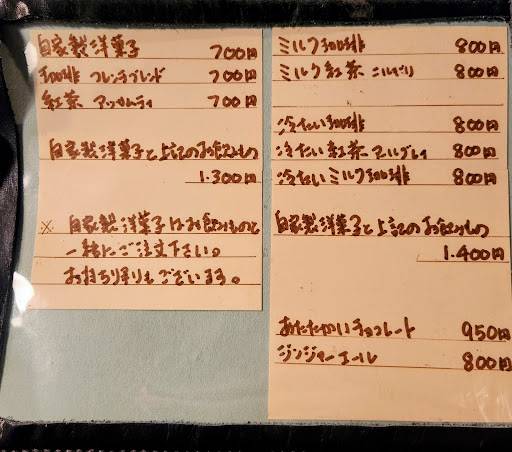 自家製洋菓子 700円
珈琲 フレンチブレンド 700円
紅茶 アッサムティ 700円
自家製洋菓子と上記のお飲みもの
1.300円
※ 自家製洋菓子はお飲みものと
一緒にご注文下さい。
お持ち帰りもございます。
ミルク珈琲 800円
ミルク紅茶 ニルギリ 800円
冷たい珈琲 800円
冷たい紅茶 アールグレイ 800円
冷たいミルク珈琲 800円
自家製洋菓子と上記のお飲みもの
1.400円
あたたかいチョコレート 950円
ジンジャーエール 800円